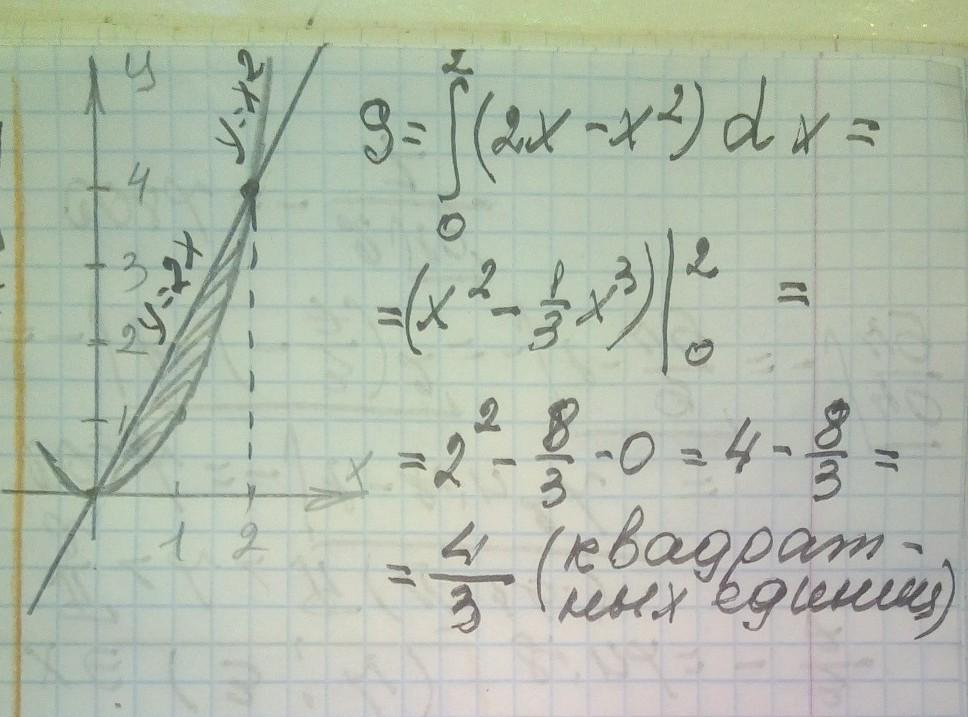 y
y=x2
4
3
y=2x
2
1
x
1 2
S = ∫₀² (2x - x²) dx =
= (x² - 1/3 x³) |₀² =
= 2² - 8/3 - 0 = 4 - 8/3 =
= 4/3 (квадрат-
ных единиц)